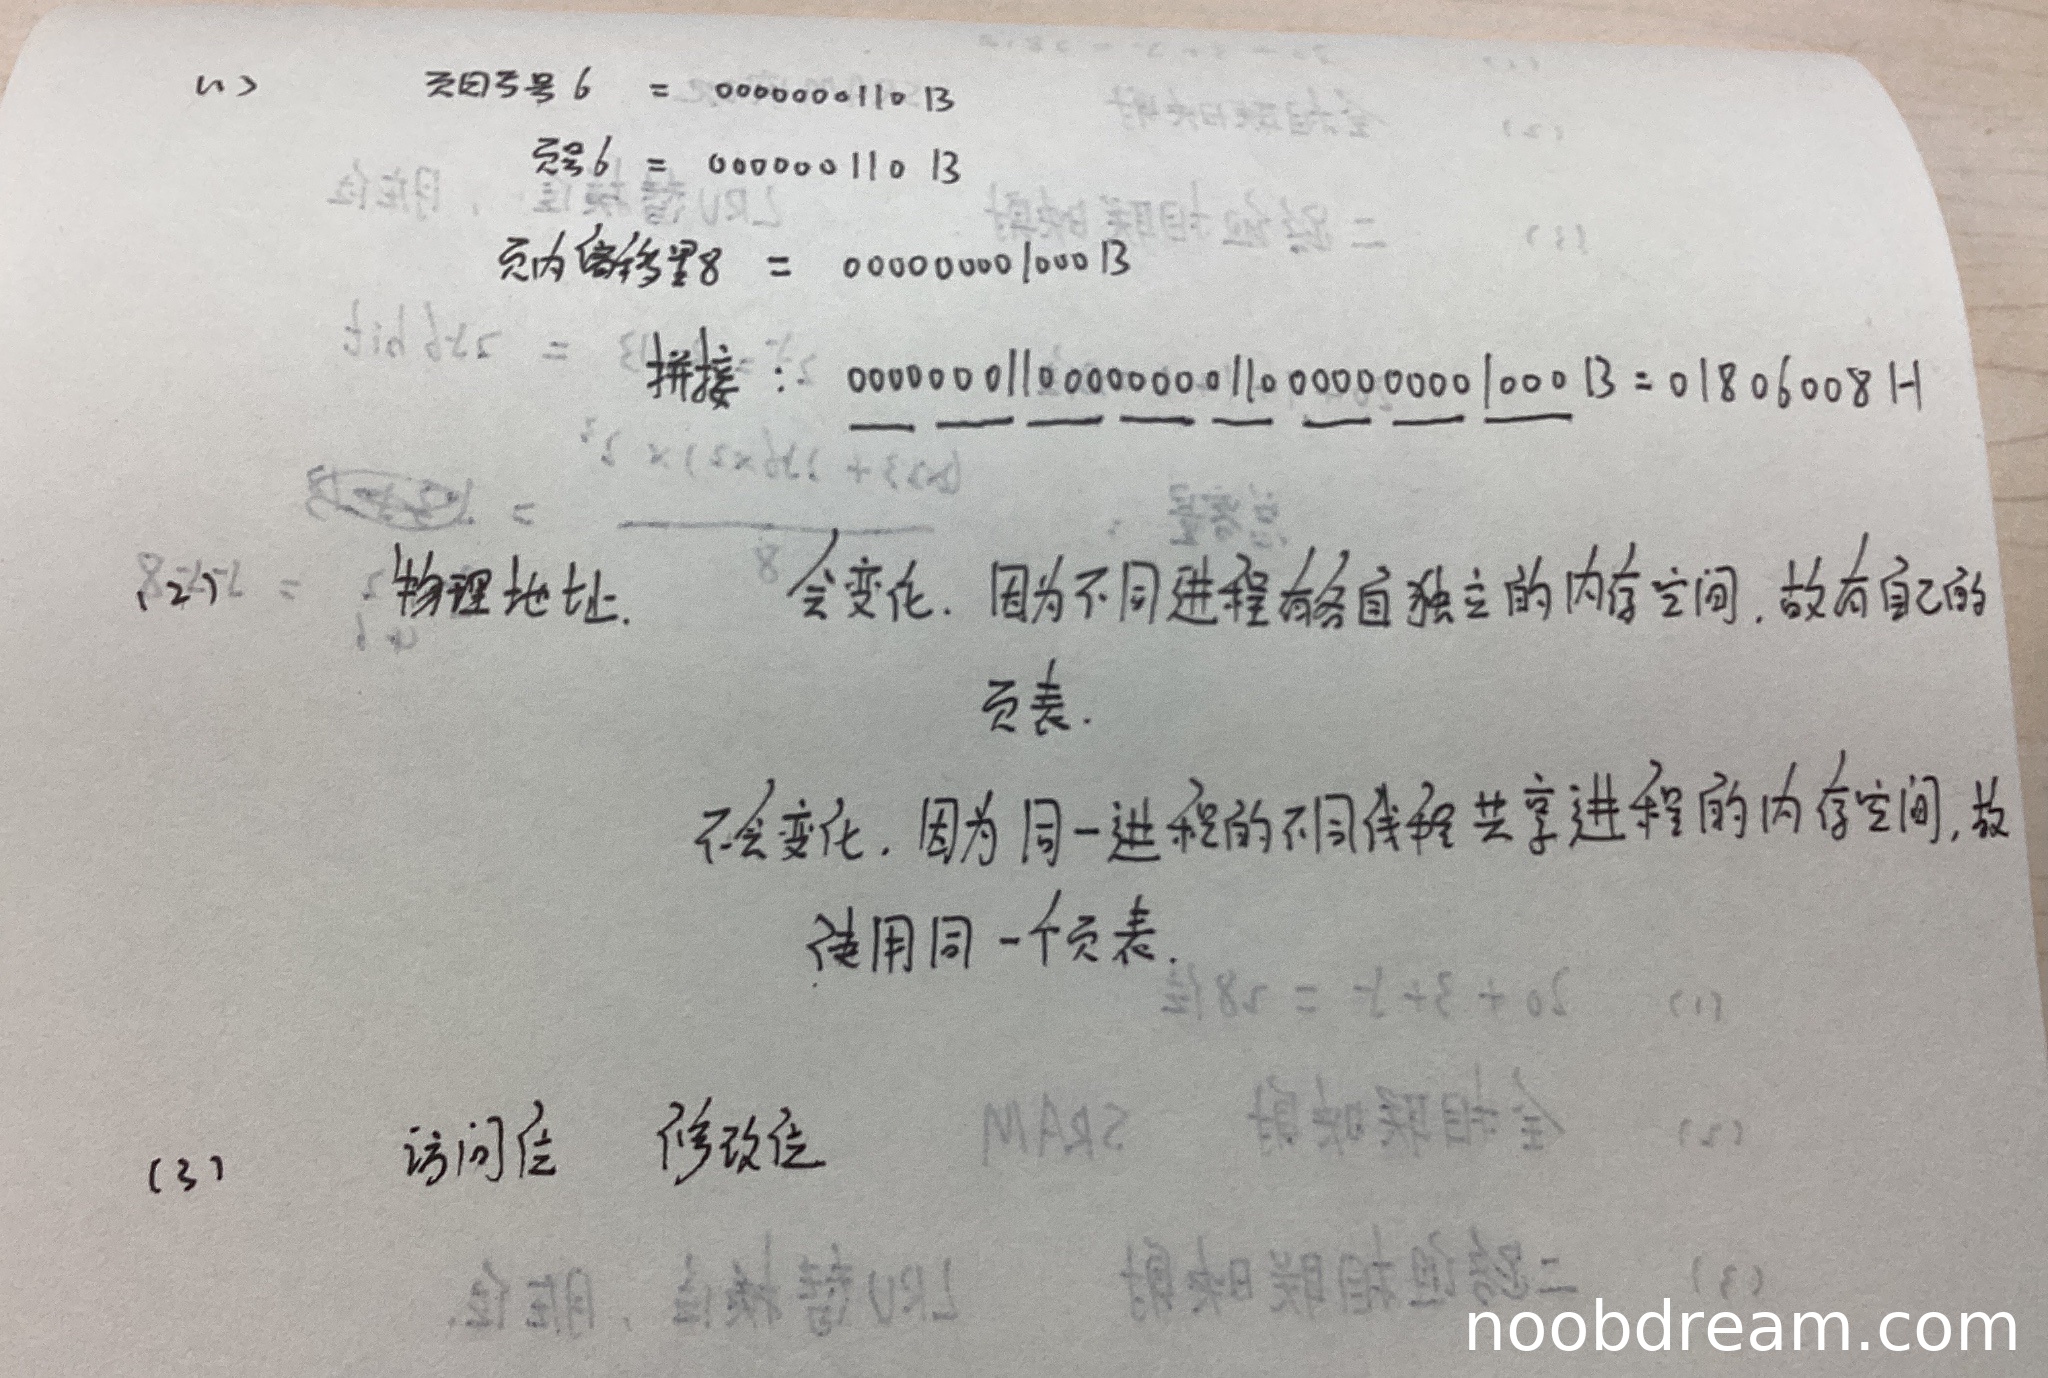 (1) 页目录号6 = 0000000110 B
页号6 = 000000110 B
页内偏移量8 = 000000001000 B
拼接: 00000001100000000110000000001000 B = 01806008 H
(2) 物理地址. 会变化. 因为不同进程有各自独立的内存空间, 故有自己的
页表.
不会变化. 因为同一进程的不同线程共享进程的内存空间, 故
使用同一个页表.
(3) 访问位 修改位
noobdream.com